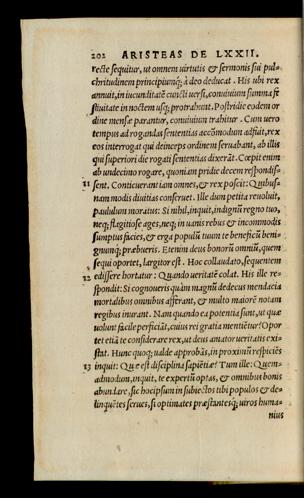 202 ARISTEAS DE LXXII.
recte sequitur, ut omnem uirtutis & sermonis sui pul-
chritudinem principiumq; à deo deducat. His ubi rex
annuit, in iucunditatē cuncti uersi, conuiuium summa fe
stiuitate in noctem usq; protraxerunt. Postridie eodem or
dine mensæ parantur, conuiuium trahitur. Cum uero
tempus ad rogandas sententias accōmodum adfuit, rex
eos interrogat qui deinceps ordinem seruabant, ab illis
qui superiori die rogati sententias dixerāt. Cœpit enim
ab undecimo rogare, quoniam pridie decem respondis-
11 sent. Conticuerant iam omnes, & rex poscit: Quibus-
nam modis diuitias conseruet. Ille dum petita reuoluit,
paululum moratus: Si nihil, inquit, indignū regno tuo,
neq; flagitiose ages, neq; in uanis rebus & incommodis
sumptus facies, & erga populū tuum te beneficū beni-
gnumq; præbueris. Etenim deus bonorū omniū, quem
sequi oportet, largitor est. Hoc collaudato, sequentem
12 edissere hortatur: Quando ueritatē colat. His ille re-
spondit: Si cognoueris quàm magnū dedecus mendacia
mortalibus omnibus afferant, & multo maiorē notam
regibus inurant. Nam quando ea potentia sunt, ut quæ
uolunt facile perficiāt, cuius rei gratia mentiētur? Opor
tet etiā te considerare rex, ut deus amator ueritatis exi-
stat. Hunc quoq; ualde approbās, in proximū respiciēs
13 inquit: Quæ est disciplina sapiētiæ? Tum ille: Quem-
admodum, inquit, te expertū optas, & omnibus bonis
abundare, sic hoc ipsum in subiectos tibi populos & de-
linquētes serues, si optimates præstantesq; uiros huma-
nius